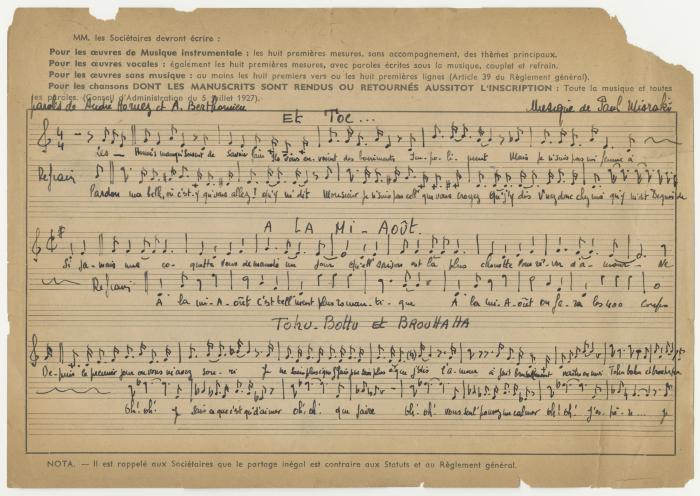 MM. les Sociétaires devront écrire :
Pour les œuvres de Musique instrumentale : les huit premières mesures, sans accompagnement, des thèmes principaux.
Pour les œuvres vocales : également les huit premières mesures, avec paroles écrites sous la musique, couplet et refrain.
Pour les œuvres sans musique : au moins les huit premiers vers ou les huit premières lignes (Article 39 du Règlement général).
Pour les chansons DONT LES MANUSCRITS SONT RENDUS OU RETOURNÉS AUSSITOT L'INSCRIPTION : Toute la musique et toutes
les paroles. (Conseil d'Administration du 5 Juillet 1927).
paroles de André Hornez et A. Berthomieu Musique de Paul Misraki
Et Toc...
Les savoir faire Ils vous en Im-po-li- ment Mais je n'suis pas
Refrain Pardon ma bell', où c'est-y qu'vous allez! qu'y m'dit Monsieur je n'suis pas cell' que vous croyez chez moi qu'y m'dit
A LA MI-AOÛT.
Si ja-mais une co- quette vous demande un jour est la plus chouette Pour d'a-mour Ne
Refrain A la mi-A-oût c'est tell'ment plus roman-ti-que A la mi-A-oût on fe-ra les 400 coups
TOHU-BOHU et BROUHAHA
De-puis le premier jour où vous m'avez sou-ri Je ne sais plus que j'fais l'a-mour a fait Tohu bohu et brouhaha
oh! oh! Je sais c'que c'est qu'd'aimer oh! oh! que faire oh! oh! vous seul' pouvez me calmer oh! oh! J'es-pè-re... je
NOTA. — Il est rappelé aux Sociétaires que le partage inégal est contraire aux Statuts et au Règlement général.